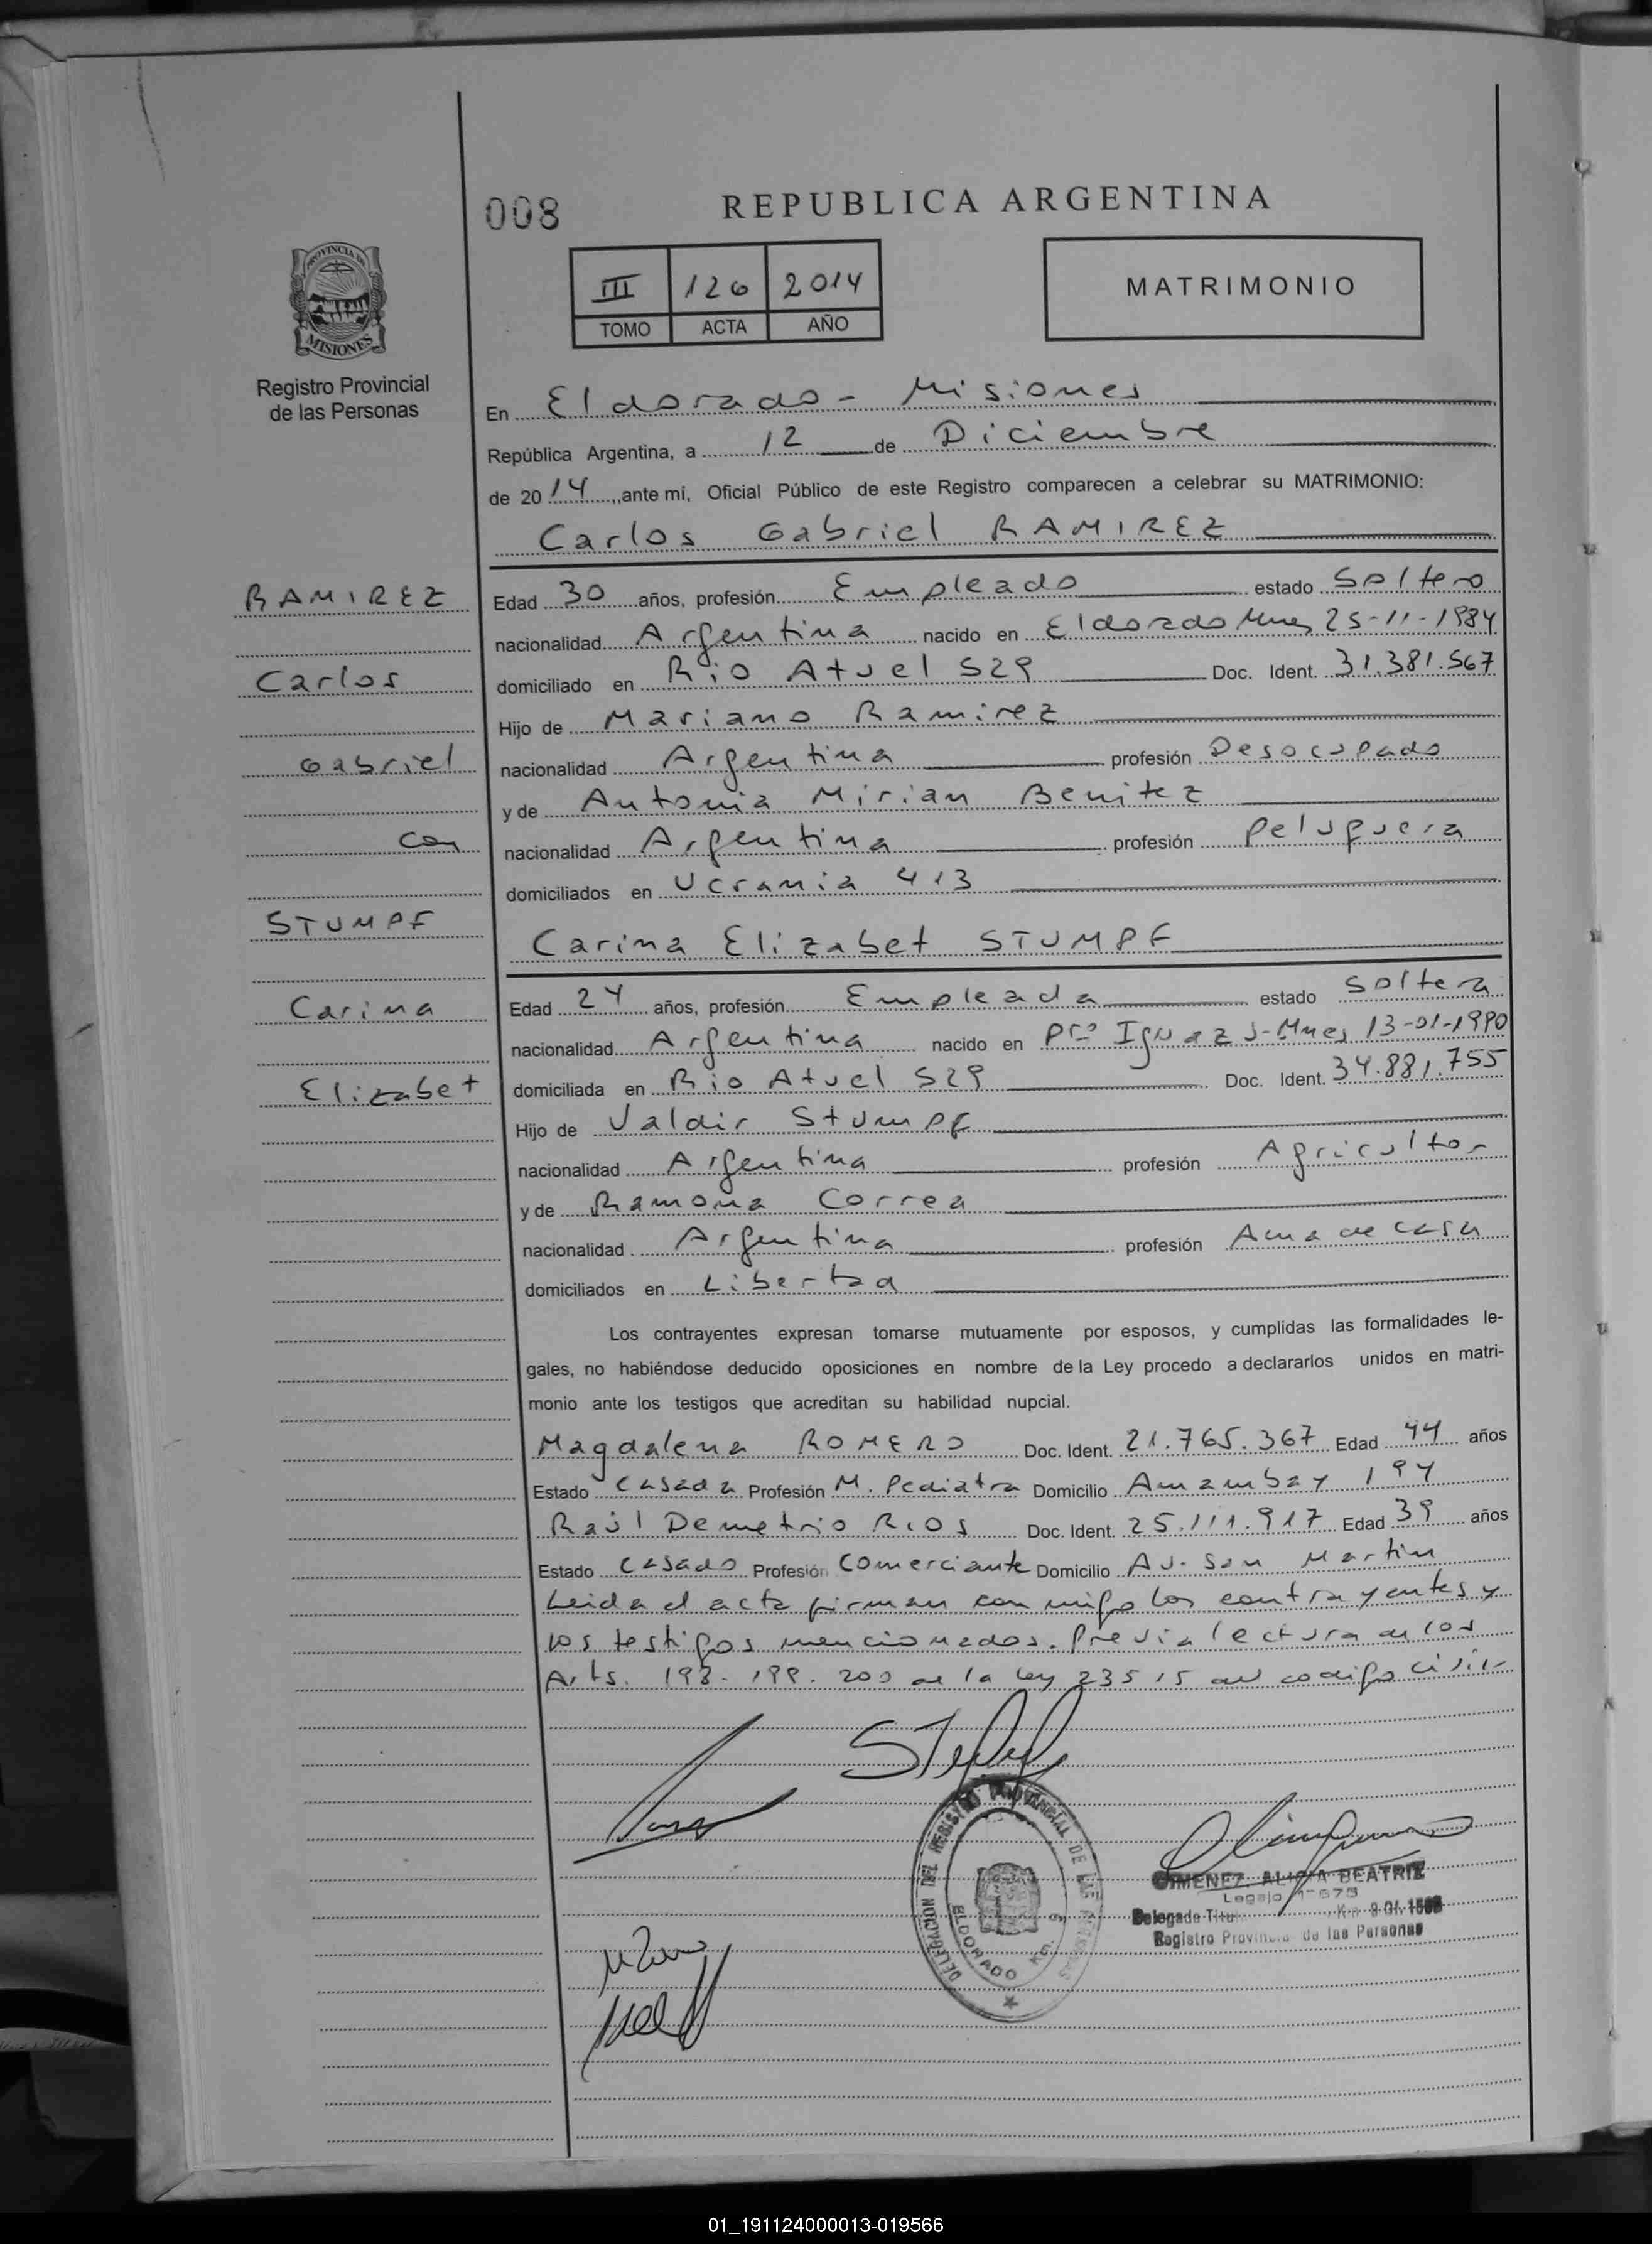 008
REPUBLICA ARGENTINA
III 126 2014
TOMO ACTA AÑO
MATRIMONIO
PROVINCIA DE
MISIONES
Registro Provincial
de las Personas
En Eldorado - Misiones
República Argentina, a 12 de Diciembre
de 2014, ante mí, Oficial Público de este Registro comparecen a celebrar su MATRIMONIO:
Carlos Gabriel RAMIREZ
RAMIREZ
Carlos
Gabriel
con
STUMPF
Carina
Elizabet
Edad 30 años, profesión Empleado estado Soltero
nacionalidad Argentina nacido en Eldorado Mnes 25-11-1984
domiciliado en Rio Atuel 529 Doc. Ident. 31.381.567
Hijo de Mariano Ramirez
nacionalidad Argentina profesión Desocupado
y de Antonia Mirian Benitez
nacionalidad Argentina profesión Peluquera
domiciliados en Ucrania 413
Carina Elizabet STUMPF
Edad 24 años, profesión Empleada estado Soltera
nacionalidad Argentina nacido en Pto Iguazú-Mnes 13-01-1990
domiciliada en Rio Atuel 529 Doc. Ident. 34.881.755
Hijo de Valdir Stumpf
nacionalidad Argentina profesión Agricultor
y de Ramona Correa
nacionalidad Argentina profesión Ama de casa
domiciliados en Libertad
Los contrayentes expresan tomarse mutuamente por esposos, y cumplidas las formalidades le-
gales, no habiéndose deducido oposiciones en nombre de la Ley procedo a declararlos unidos en matri-
monio ante los testigos que acreditan su habilidad nupcial.
Magdalena ROMERO Doc. Ident. 21.765.367 Edad 44 años
Estado Casada Profesión M. Pediatra Domicilio Amambay 194
Raúl Demetrio RIOS Doc. Ident. 25.111.917 Edad 39 años
Estado Casado Profesión Comerciante Domicilio Av. San Martin
Leida el acta firman conmigo los contrayentes y
los testigos mencionados. Previa lectura de los
Arts. 198-199-200 de la ley 23515 del codigo civil-
DELEGACION DEL REGISTRO PROVINCIAL DE LAS PERSONAS
ELDORADO KM. 9
GIMENEZ, ALICIA BEATRIZ
Legajo
Delegada Titu
Registro Provincial de las Personas
01_191124000013-019566